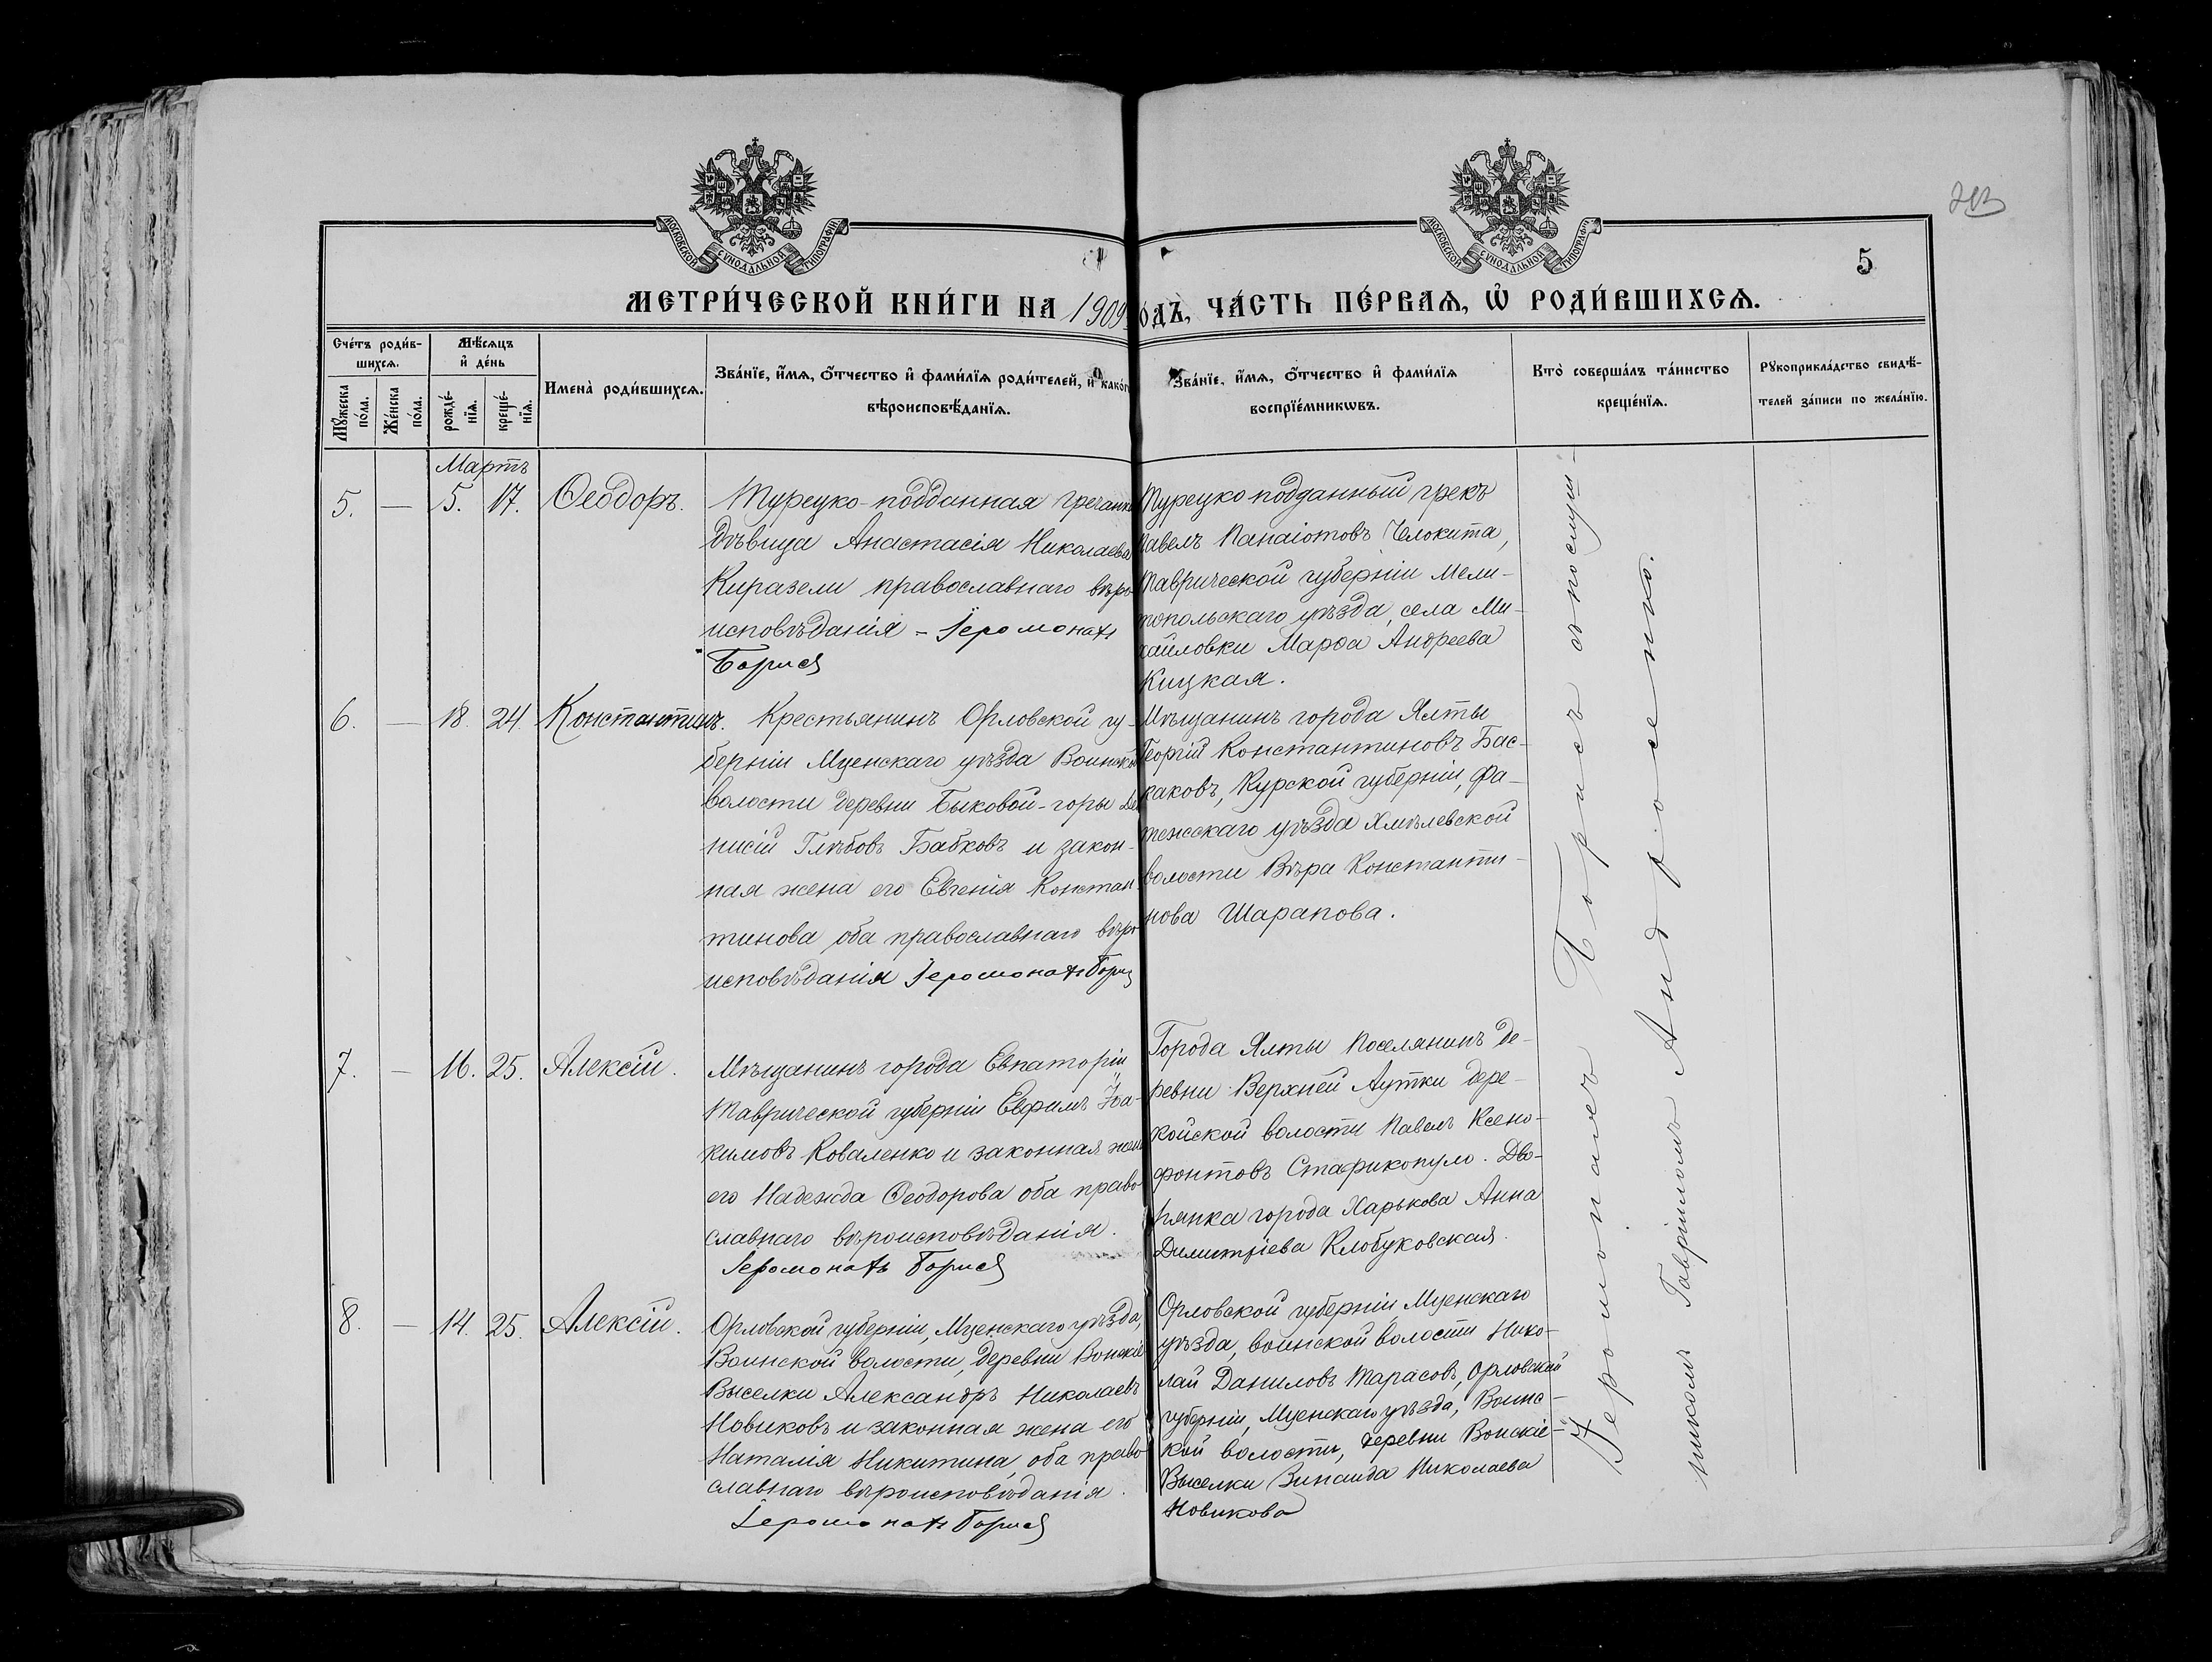 213
5
МОСКОВСКОЙ СУНОДАЛЬНОЙ ТИПОГРАФІИ
МОСКОВСКОЙ СУНОДАЛЬНОЙ ТИПОГРАФІИ
МЕТРИ́ЧЕСКОЙ КНИ́ГИ НА 1909 одъ, ЧА́СТЬ ПЕ́РВАѦ, Ѡ҆ РОДИ́ВШИХСѦ.
Сче́тъ роди́в-
шихсѧ.
Мꙋ́жеска по́ла.
Же́нска по́ла.
Мѣ́сѧцъ
и҆ де́нь
рожде́-
нїѧ.
креще́-
нїѧ.
Имена̀ роди́вшихсѧ.
Зва́нїе, и҆́мѧ, ѻ҆́тчество и҆ фами́лїѧ роди́телей, и҆ како́гѡ
вѣроисповѣ́данїѧ.
Зва́нїе, и҆́мѧ, ѻ҆́тчество и҆ фами́лїѧ
воспрїе́мникѡвъ.
Кто̀ соверша́лъ та́инство
креще́нїѧ.
Рꙋкоприкла́дство свидѣ́-
телей за́писи по жела́нїю.
Мартъ
5. — 5. 17. Ѳеодоръ.
Турецко-подданная гречанк
дѣвица Анастасія Николаева
Киразели православнаго вѣро
исповѣданія - Іеромонахъ
Борисъ
Турецко подданный грекъ
Павелъ Панаіотовъ Челокита,
Таврической губерніи Мели-
топольскаго уѣзда, села Ми-
хайловки Марѳа Андреева
Кицкая.
6. — 18. 24. Константинъ.
Крестьянинъ Орловской гу-
берніи Мценскаго уѣзда Воинской
волости деревни Быковой-горы Ди
нисій Глѣбовъ Бабковъ и закон-
ная жена его Евгенія Констан
тинова, оба православнаго вѣро
исповѣданія Іеромонахъ Борисъ
Мѣщанинъ города Ялты
Георгій Константиновъ Бас-
каковъ, Курской губерніи, Фа-
тежскаго уѣзда Хмѣлевской
волости Вѣра Константи-
нова Шарапова.
7. — 16. 25. Алексій.
Мѣщанинъ города Евпаторіи
Таврической губерніи Евфимъ Іоа-
кимовъ Коваленко и законная жена
его Надежда Ѳеодорова оба право
славнаго вѣроисповѣданія.
Іеромонахъ Борисъ
Города Ялты Поселянинъ де-
ревни Верхней Аутки дере-
койской волости Павелъ Ксено-
фонтовъ Стафикопуло. Дво-
рянка города Харькова Анна
Димитріева Клобуковская.
8. — 14. 25. Алексій.
Орловской губерніи, Мценскаго уѣзда,
Воинской волости, деревни Вонскіе
Выселки Александръ Николаевъ
Новиковъ и законная жена его
Наталія Никитина, оба право
славнаго вѣроисповѣданія.
Іеромонахъ Борисъ
Орловской губерніи, Мценскаго
уѣзда, воинской волости Нико-
лай Даниловъ Тарасовъ, Орловской
губерніи, Мценскаго уѣзда, Воинс-
кой волости, деревни Вонскіе-
Выселки Зинаида Николаева
Новикова
Іеромонахъ Борисъ съ послуш-
никомъ Гавріиломъ Андросенко.